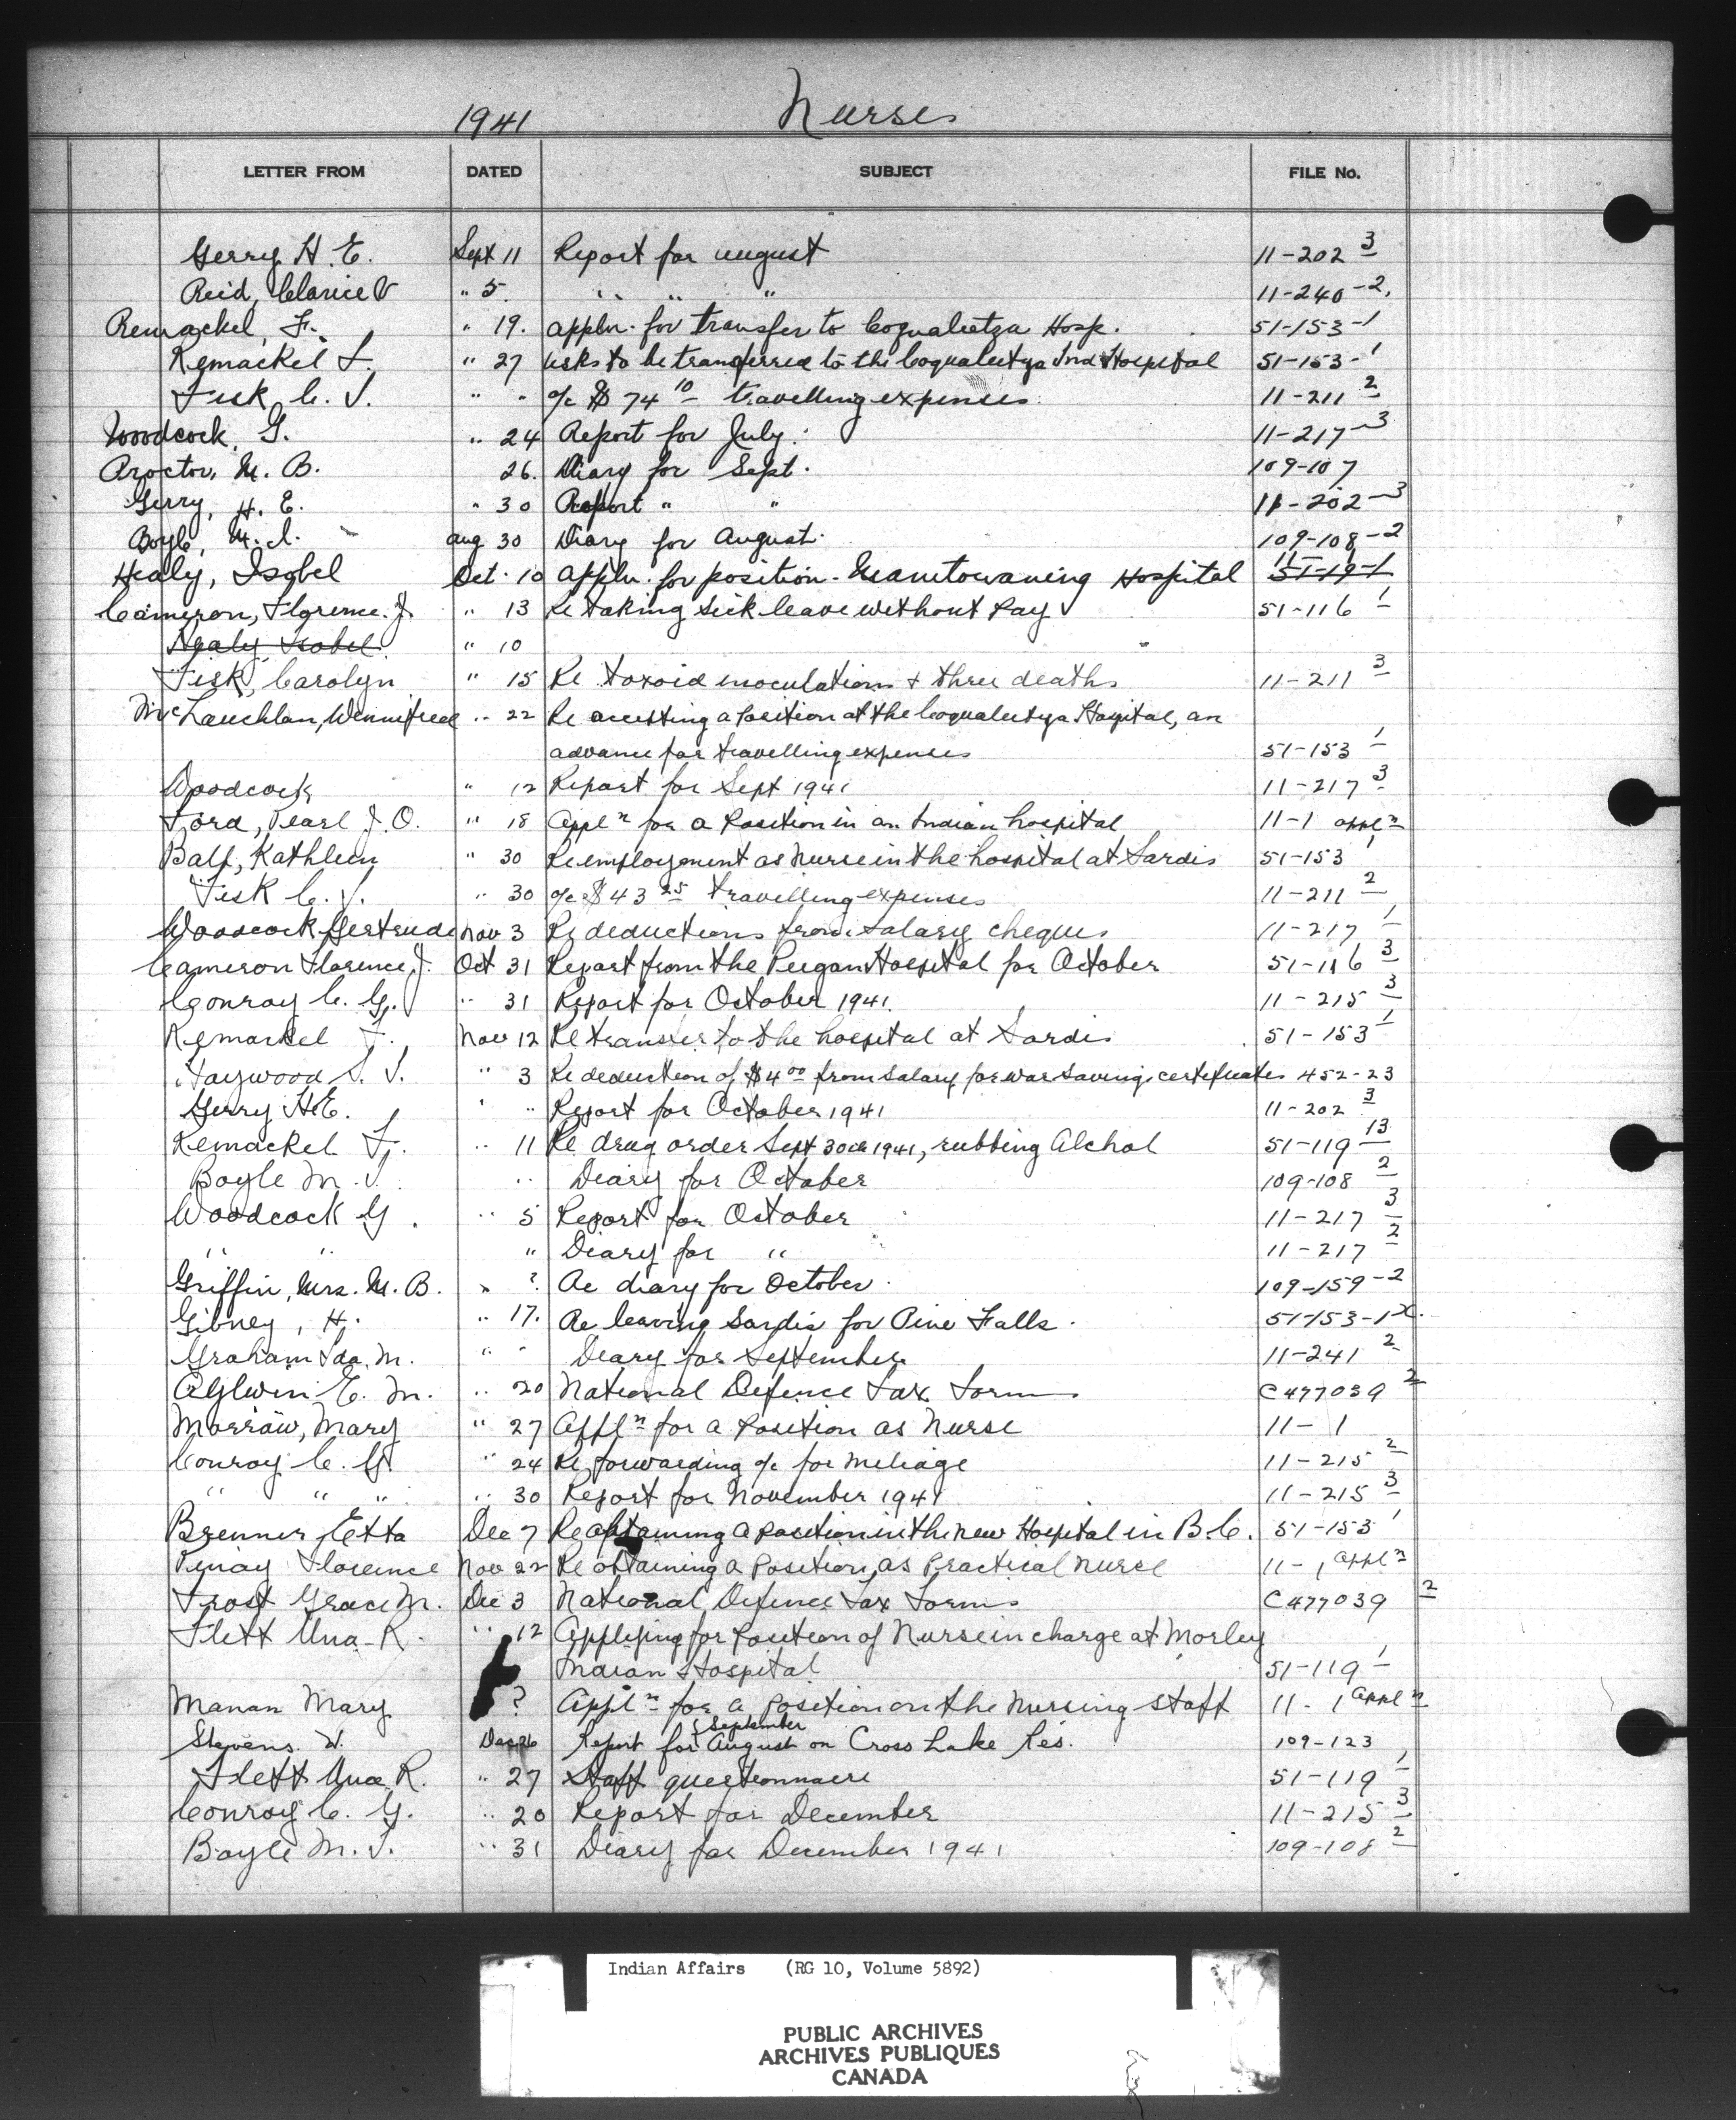 1941 Nurses
LETTER FROM DATED SUBJECT FILE No.
Gerry H. E. Sept 11 Report for august 11-202 3
Reid, Clarice V " 5. " " " 11-240-2.
Remackel, F. " 19. appln. for transfer to Coqualeetza Hosp. 51-153-1
Remackel F. " 27 asks to be transferred to the Coqualeetza Ind Hospital 51-153-1
Fisk C. J. " " a/c $ 74 10 travelling expenses 11-211 2
Woodcock, G. " 24 Report for July. 11-217-3
Proctor, M. B. 26. Diary for Sept. 109-107
Gerry, H. E. " 30 Report " " 11-202-3
Boyle, M. I. aug 30 Diary for August. 109-108-2
Healy, Isobel Oct. 10 appln. for position - Manitowaning Hospital 51-19-1
Cameron, Florence. J. " 13 Re taking sick leave without pay 51-116 1
Healy Isobel " 10
Fisk, Carolyn " 15 Re toxoid inoculations + three deaths 11-211 3
McLauchlan, Winnifred " 22 Re accepting a position at the Coqualeetza Hospital, an
advance for travelling expenses 51-153 1
Woodcock " 12 Report for Sept 1941 11-217 3
Ford, Pearl J. O. " 18 Appl n for a position in an Indian hospital 11-1 appl n
Balf, Kathleen " 30 Re employment as Nurse in the hospital at Sardis 51-153 1
Fisk C. J. " 30 a/c $43 25 travelling expenses 11-211 2
Woodcock Gertrude Nov 3 Re deductions from salary cheques 11-217 1
Cameron Florence J. Oct 31 Report from the Peigan Hospital for October 51-116 3
Conroy C. G. " 31 Report for October 1941. 11-215 3
Remackel F. Nov 12 Re transfer to the hospital at Sardis 51-153 1
Haywood S. J. " 3 Re deduction of $4 00 from salary for war savings certificates 452-23
Gerry H.E. " " Report for October 1941 11-202 3
Remackel F. " 11 Re drug order Sept 30th 1941, rubbing Alchol 51-119 13
Boyle M. I. " Diary for October 109-108 2
Woodcock G. " 5 Report for October 11-217 3
" " " Diary for " 11-217 2
Griffin, Mrs. M. B. " ? Re diary for October. 109-159-2
Gibney, H. " 17. Re leaving Sardis for Pine Falls. 51-153-1 x.
Graham Ida, M. " " Diary for September 11-241 2
Aylwin E. M. " 20 National Defence Tax Forms C477039 2
Morrow, Mary " 27 Appl n for a position as Nurse 11-1
Conroy C. G. " 24 Re forwarding a/c for mileage 11-215 2
" " " " 30 Report for November 1941 11-215 3
Brenner, Etta Dec 7 Re obtaining a position in the new Hospital in B.C. 51-153 1
Florence Nov 22 Re obtaining a position, as Practical nurse 11-1 appl n
Frost Grace M. Dec 3 National Defence Tax Forms C477039 2
Flett Una R. " 12 Applying for position of Nurse in charge at Morley
Indian Hospital 51-119 1
Manan Mary ? Appl n for a position on the nursing staff 11-1 appl n
September
Stevens. Dec 26 Report for August on Cross Lake Res. 109-123
Flett Una R. " 27 Staff questionnaire 51-119 1
Conroy C. G. " 20 Report for December 11-215 3
Boyle M. I. " 31 Diary for December 1941 109-108 2
Indian Affairs (RG 10, Volume 5892)
PUBLIC ARCHIVES
ARCHIVES PUBLIQUES
CANADA